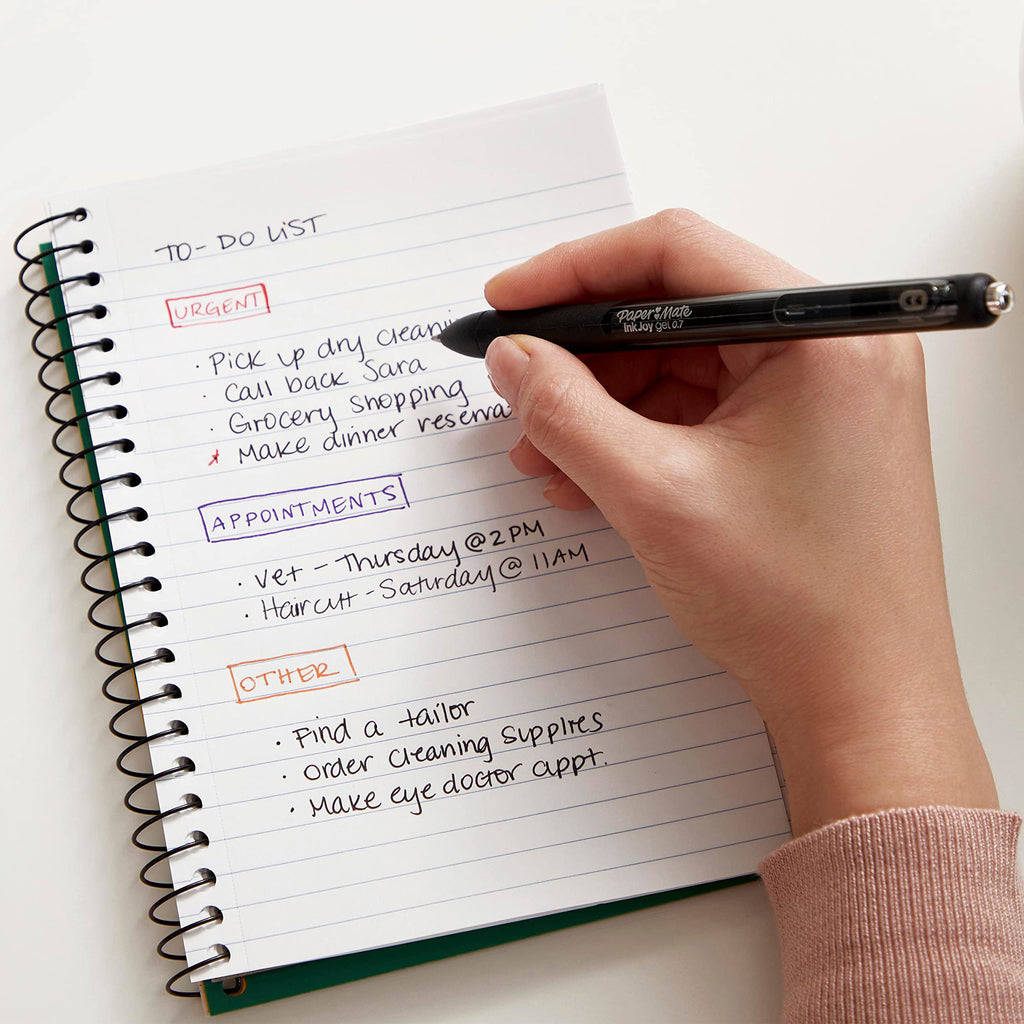 TO-DO LIST
URGENT
· Pick up dry cleani
· Call back Sara
· Grocery shopping
* Make dinner reserva
APPOINTMENTS
· Vet - Thursday @ 2PM
· Haircutt - Saturday @ 11AM
OTHER
· Find a tailor
· Order cleaning supplies
· Make eye doctor appt.
Paper Mate
InkJoy gel 0.7